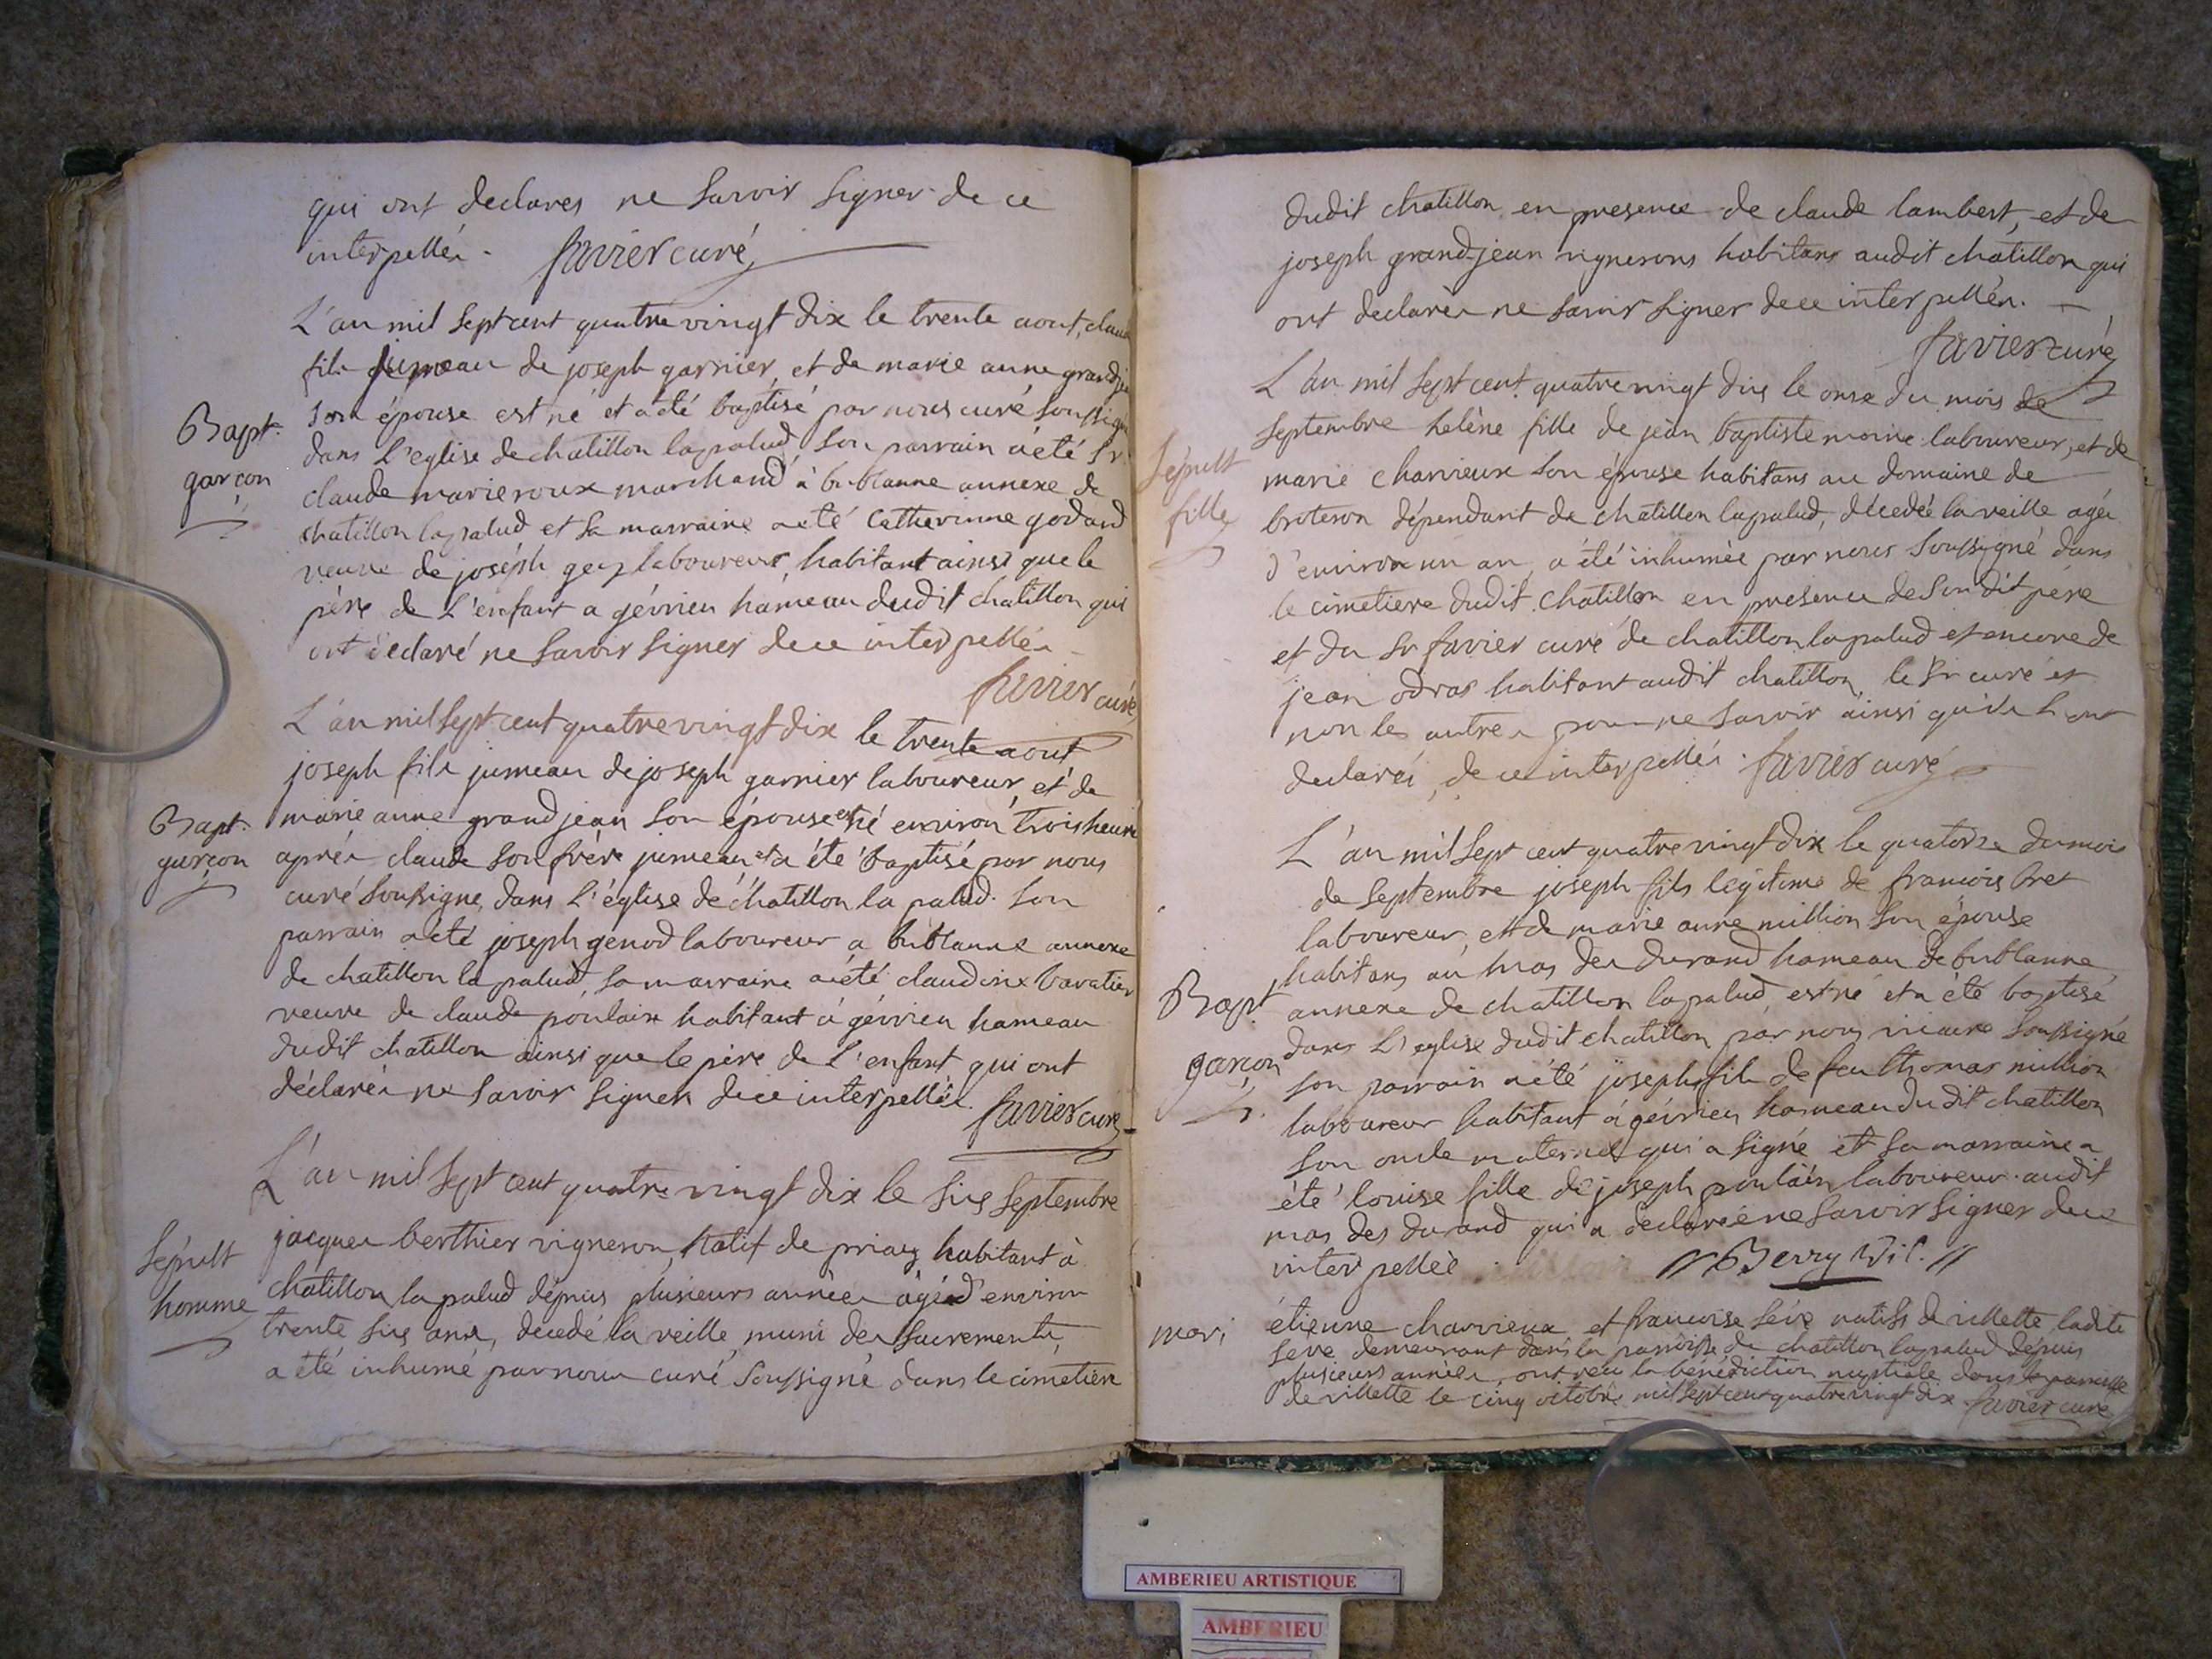 qui ont declares ne savoir signer de ce
interpellés. favier curé
L'an mil sept cent quatre vingt dix le trente aout, claude
fils jumeau de joseph garnier, et de marie anne grandjean
Bapt. garçon
son épouse est né et a été baptisé par nous curé soussigné
dans L'eglise de chatillon lapalud, son parrain a été Sr.
claude marie roux marchand à bublanne annexe de
chatillon lapalud et sa marraine a eté Catherinne godard
veuve de joséph gey laboureur, habitant ainsi que le
père de L'enfant a gévrieu hameau dudit chatillon qui
ont déclaré ne savoir signer de ce interpellés
favier curé
L'an mil sept cent quatre vingt dix le trente aout
joseph fils jumeau de joseph garnier laboureur, et de
Bapt. garçon
marie anne grandjean son épouse est né environ trois heures
après claude son frère jumeau et a été baptisé par nous
curé soussigné, dans L'église de chatillon la palud. son
parrain a eté joseph genod laboureur a bublanne annexe
de chatillon la palud, sa marraine a été claudine bavatier
veuve de claude poulain habitant à gévrieu hameau
dudit chatillon ainsi que le père de L'enfant qui ont
déclarés ne savoir signer de ce interpellés.
favier curé
L'an mil sept cent quatre vingt dix le six septembre
Sépult homme
jacques berthier vigneron, natif de priay habitant à
chatillon lapalud dépuis plusieurs années agé d'environ
trente six ans, decedé la veille, muni des sacrements,
a été inhumé par nous curé soussigné dans le cimetiere
dudit chatillon en presence de claude lambert, et de
joseph grandjean vignerons habitans audit chatillon qui
ont declarés ne savoir signer de ce interpellés.
favier curé
L'an mil sept cent quatre vingt dix le onse du mois de
septembre helène fille de jean baptiste moine laboureur, et de
Sépult fille
marie charvieux son épouse habitans au domaine de
broteron dépendant de chatillon lapalud, décedée la veille agée
d'environ un an, a été inhumée par nous soussigné dans
le cimetiere dudit chatillon en presence de son dit père
et du Sr favier curé de chatillon lapalud et encore de
jean odras habitant audit chatillon, le Sr curé et
non les autres pour ne savoir ainsi qu'ils L'ont
declarés, de ce interpellés. favier curé
L'an mil sept cent quatre vingt dix le quatorse du mois
de septembre joseph fils légitime de francois bret
laboureur, et de marie anne million son épouse
habitans au mas des durand hameau de bublanne
Bapt garçon
annexe de chatillon lapalud, est né et a été baptisé
dans L'eglise dudit chatillon par nous vicaire soussigné
son parrain a été joseph fils de feu thomas million
laboureur habitant à gévrieu hameau dudit chatillon
son oncle maternel qui a signé et sa marraine a
été louise fille de joseph poulain laboureur audit
mas des durand qui a déclarée ne savoir signer de ce
interpellée. // Berry Vic. //
mari
étienne charvieux et francoise séve natifs de villette, ladite
seve demeurant dans la paroisse de chatillon lapalud dépuis
plusieurs années, ont reçu la bénédiction nuptiale dans la paroisse
de villette le cinq octobre mil sept cent quatre vingt dix favier curé
AMBERIEU ARTISTIQUE
AMBERIEU